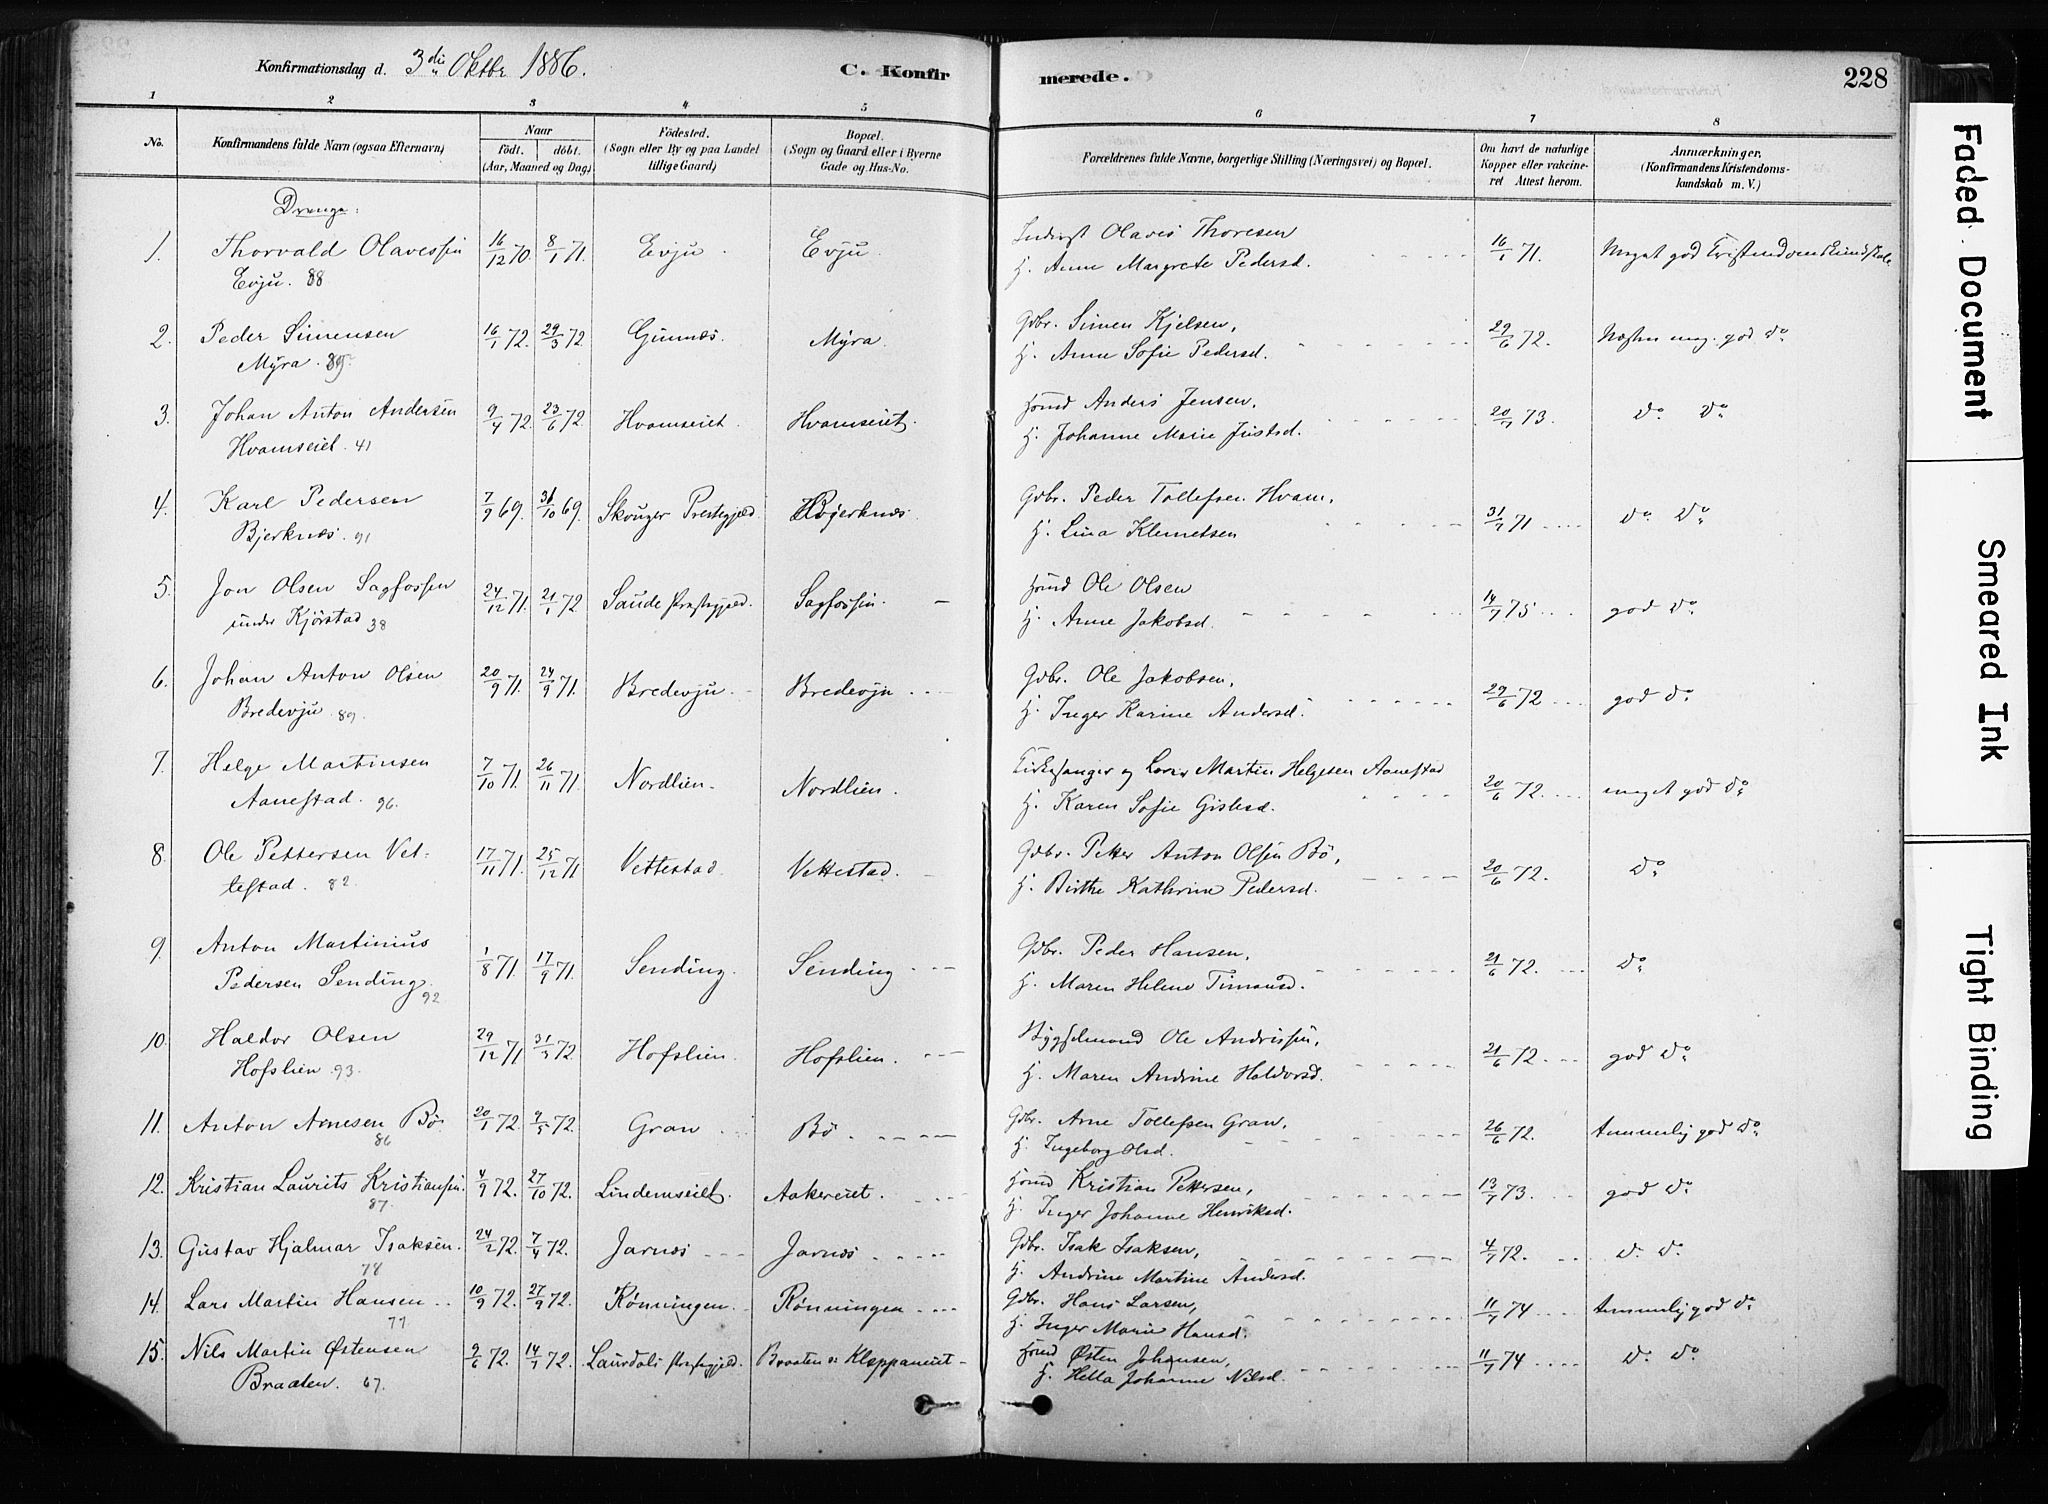 Konfirmationsdag d. 3die Oktbr 1886.
C. Konfirmerede.
228
1 2 3 4 5 6 7 8
No.
Konfirmandens fulde Navn (ogsaa Efternavn)
Naar
födt. döbt.
(Aar, Maaned og Dag)
Födested.
(Sogn eller By og paa Landet
tillige Gaard)
Bopæl.
(Sogn og Gaard eller i Byerne
Gade og Hus-No.
Forældrenes fulde Navne, borgerlige Stilling (Næringsvei) og Bopæl.
Om havt de naturlige
Kopper eller vakcine-
ret Attest herom.
Anmærkninger.
(Konfirmandens Kristendoms-
kundskab m. V.)
Drenge:
1. Thorvald Olavessen 16/12 70. 8/1 71. Evju Evju. Olaves Thoresen 16/1 71. Meget god Kristendomskundskab
Evju. 88 H. Anne Margrete Pedersd.
2. Peder Simensen 16/1 72. 29/3 72 Gunnes. Myra. Gdbr. Simen Kjelsen, 29/6 72. Næsten meg. god do
Myra. 89. H. Anne Sofie Pedersd.
3. Johan Anton Andersen 9/4 72. 23/6 72. Hvamseiet. Hvamseiet. Hsmd Anders Jensen, 20/7 73. do do
Hvamseiet. 41 H. Johanne Marie Justsd.
4. Karl Pedersen 7/9 69. 31/10 69. Skouger Prestegjeld. Bjerknæs Gdbr. Peder Tollefsen Hvam, 31/7 71 do do
Bjerknæs. 91 H. Lina Klemetsen
5. Jon Olsen Sagfossen 24/12 71. 21/1 72 Saude Prestegjeld. Sagfossen. Hsmd Ole Olsen 14/7 75 god do
under Kjörstad 38 H. Anne Jakobsd.
6. Johan Anton Olsen 20/9 71. 24/9 71. Bredevju. Bredevju Gdbr. Ole Jakobsen, 29/6 72 god do
Bredevju. 89. H. Inger Karine Andersd.
7. Helge Martinsen 7/10 71. 26/11 71. Nordlien. Nordlien. Kirkesanger og Lærer Martin Helgesen Aanestad 20/6 72. meget god do
Aanestad. 96. H. Karen Sofie Gislesd.
8. Ole Pettersen Vet- 17/11 71. 25/12 71 Vettestad. Vettestad. Gdbr. Petter Anton Olsen Bö, 20/6 72. do
testad. 82. H. Birthe Kathrine Pedersd.
9. Anton Martinius 1/8 71. 17/9 71. Sending. Sending Gdbr. Peder Hansen, 21/6 72. do
Pedersen Sending. 92 H. Maren Helene Timansd.
10. Haldor Olsen 29/12 71 31/3 72. Hofslien. Hofslien. Bygselmand Ole Andrissen, 21/6 72. god do
Hofslien 93. H. Maren Andrine Haldorsd.
11. Anton Arnesen Bö. 20/1 72. 9/5 72. Gran Bö. Gdbr. Arne Tollefsen Gran, 26/6 72. temmelig god do
86 H. Ingeborg Olsd.
12. Kristian Laurits Kristiansen. 4/9 72. 27/10 72. Lindemseiet. Aakereiet. Hsmd Kristian Pettersen, 13/7 73. god do
87. H. Inger Johanne Henriksd.
13. Gustav Hjalmar Isaksen. 24/2 72. 7/4 72. Jarnæs Jarnæs Gdbr. Isak Isaksen, 4/7 72. do do
78 H. Andrine Martine Andersd.
14. Lars Martin Hansen 10/9 72. 27/9 72. Rönningen. Rönningen Gdbr. Hans Larsen, 11/7 74 temmelig god do
77 H. Inger Marie Hansd.
15. Nils Martin Østensen 9/6 72. 14/1 72. Laurdals Prestegjeld. Braaten Klappaneiet Hsmd Østen Johansen, 11/7 74 do do
Braaten. 67. H. Hella Johanne Nilsd.
Faded Document
Smeared Ink
Tight Binding